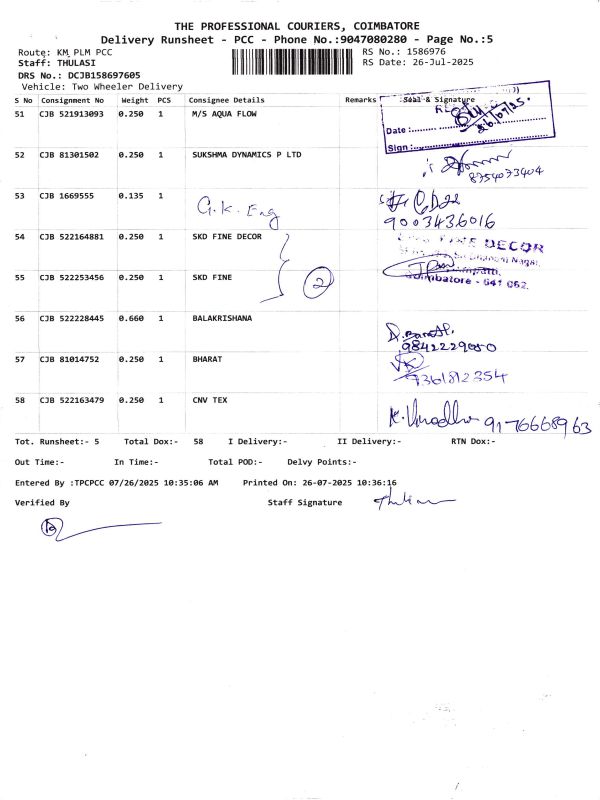 THE PROFESSIONAL COURIERS, COIMBATORE
Delivery Runsheet - PCC - Phone No.:9047080280 - Page No.:5
Route: KM PLM PCC RS No.: 1586976
Staff: THULASI RS Date: 26-Jul-2025
DRS No.: DCJB158697605
Vehicle: Two Wheeler Delivery
S No Consignment No Weight PCS Consignee Details Remarks Seal & Signature
51 CJB 521913093 0.250 1 M/S AQUA FLOW
26/07/25.
Date :
Sign :
52 CJB 81301502 0.250 1 SUKSHMA DYNAMICS P LTD
8754033404
53 CJB 1669555 0.135 1 G.K. Eng
9003436016
54 CJB 522164881 0.250 1 SKD FINE DECOR
FINE DECOR
Nagar,
55 CJB 522253456 0.250 1 SKD FINE 2
Coimbatore - 641 062.
56 CJB 522228445 0.660 1 BALAKRISHANA
9842229080
57 CJB 81014752 0.250 1 BHARAT
9361812354
58 CJB 522163479 0.250 1 CNV TEX
9176668963
Tot. Runsheet:- 5 Total Dox:- 58 I Delivery:- II Delivery:- RTN Dox:-
Out Time:- In Time:- Total POD:- Delvy Points:-
Entered By :TPCPCC 07/26/2025 10:35:06 AM Printed On: 26-07-2025 10:36:16
Verified By Staff Signature